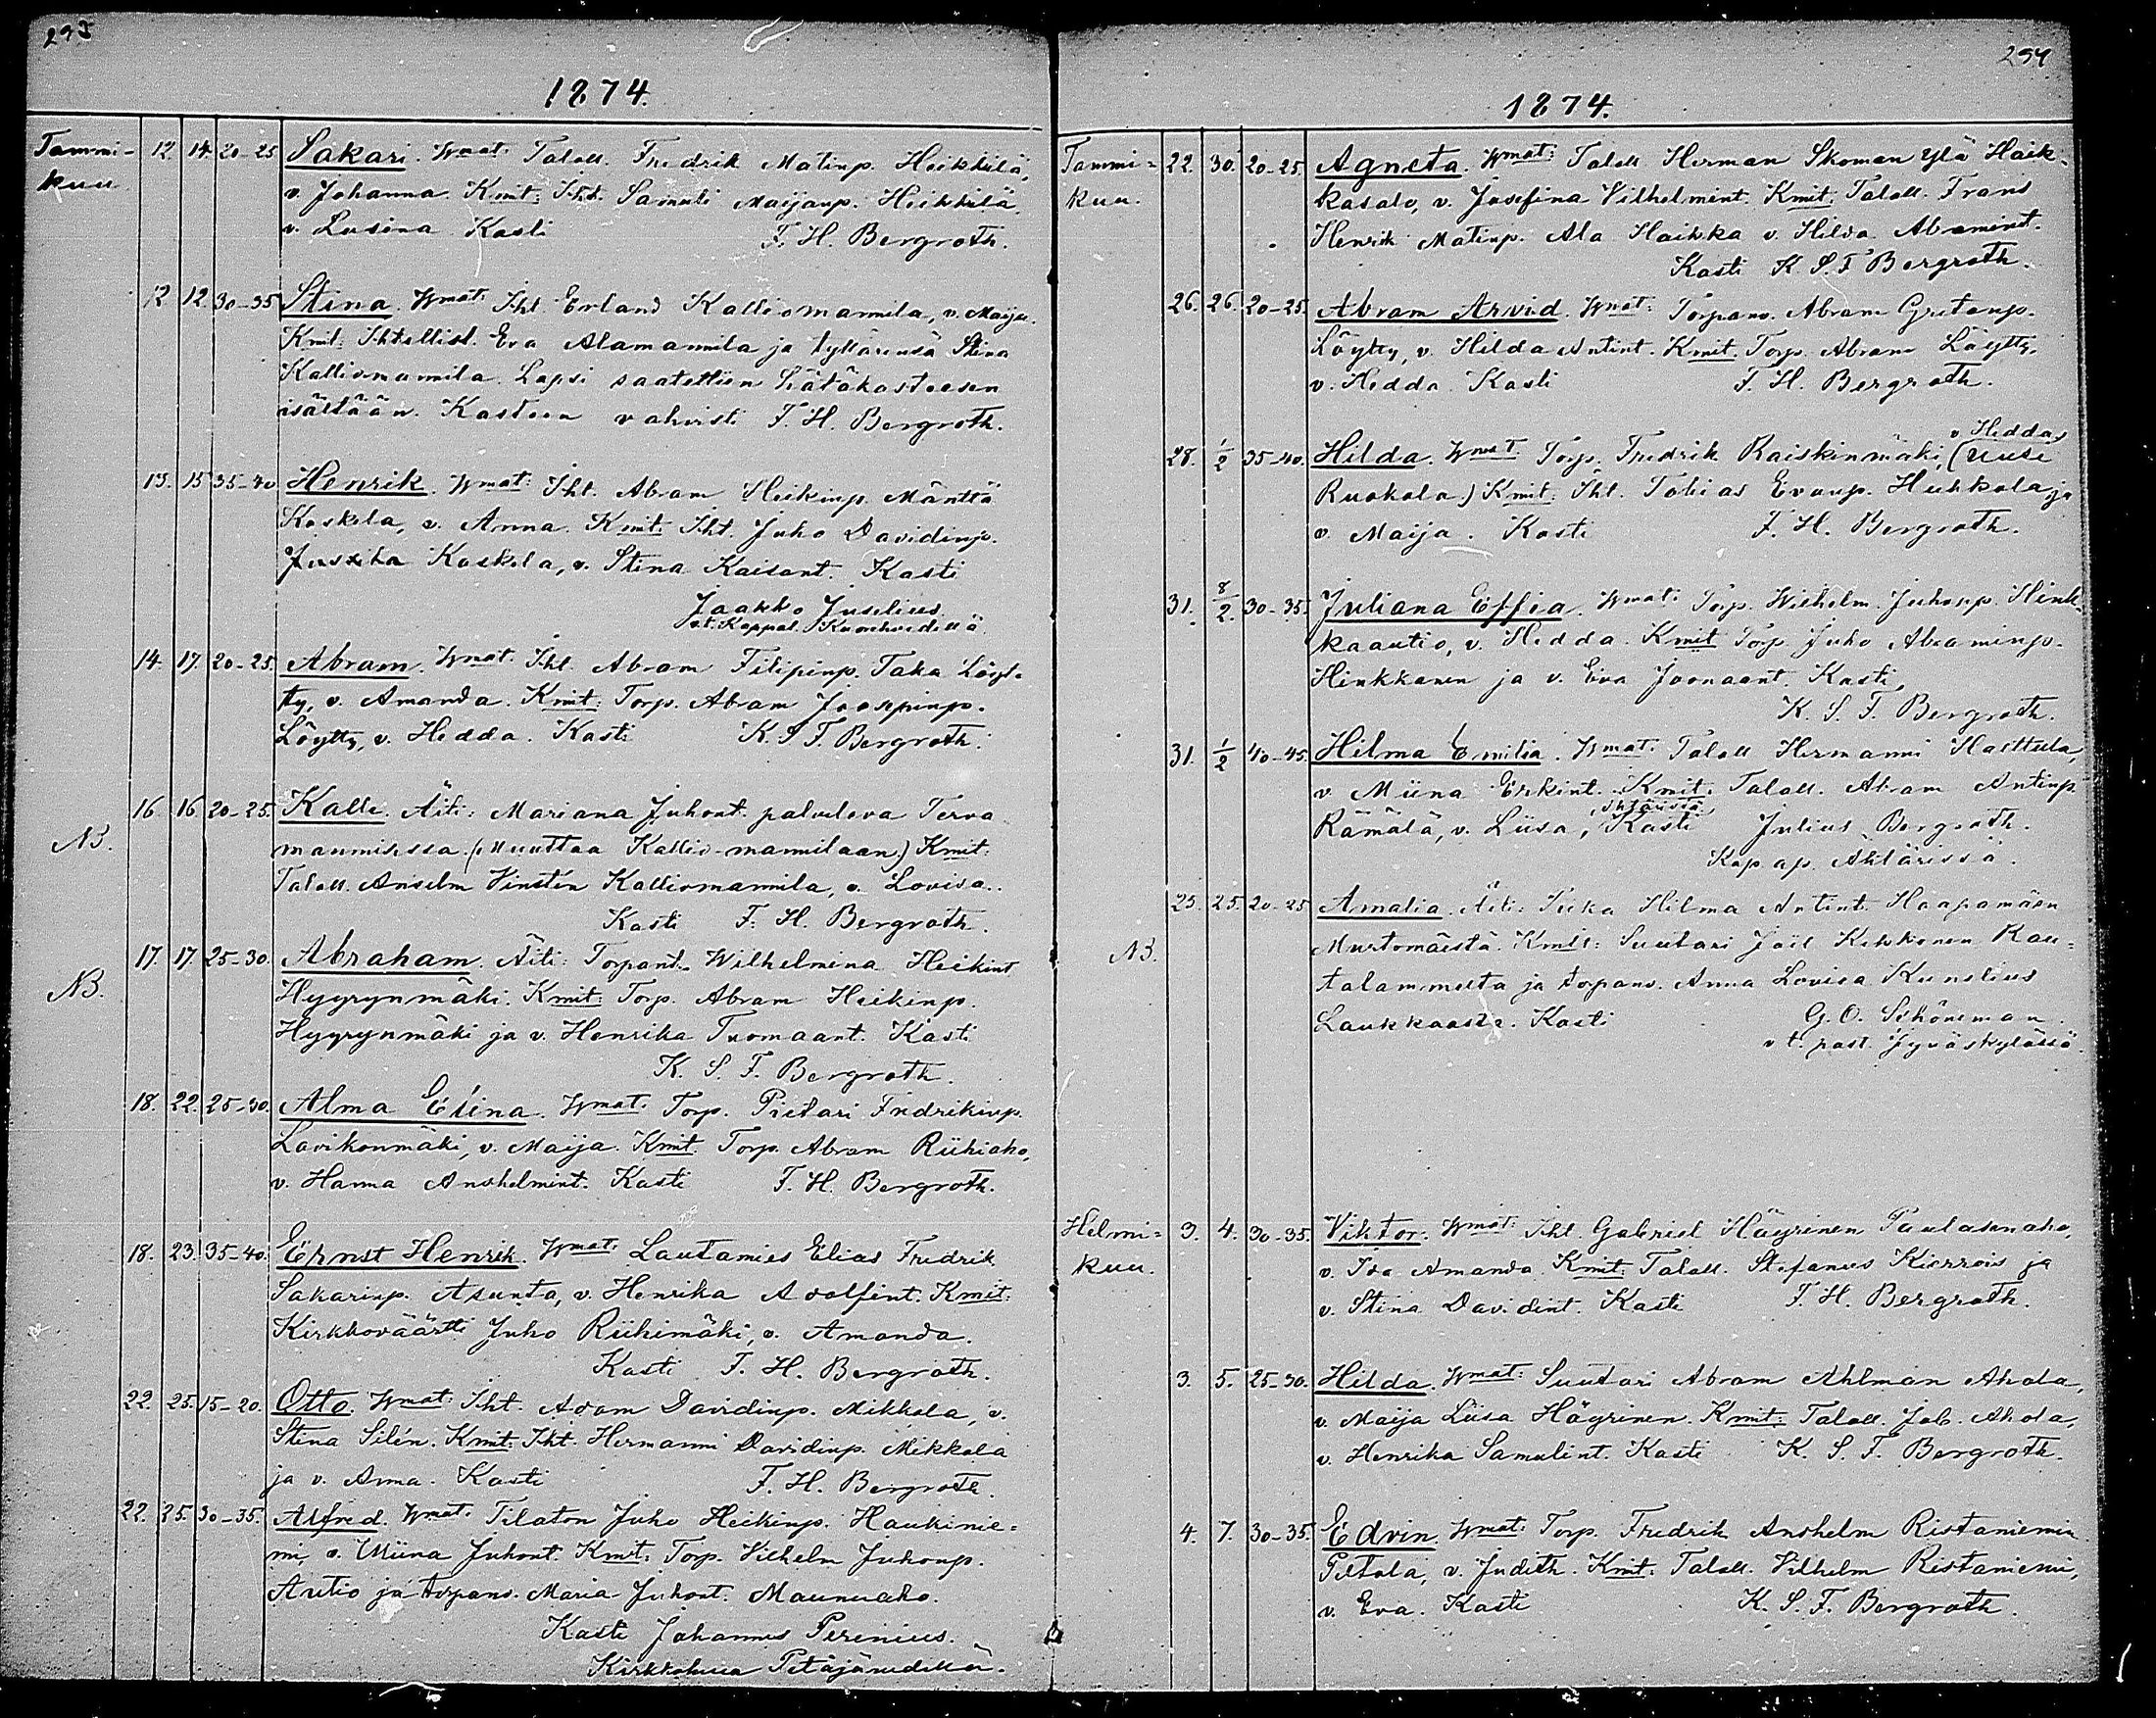 293
1874.
Tammi- 12. 14. 20-25 Sakari. Wmat: Taloll. Fredrik Matinp. Heikkilä,
kuu v. Johanna. Kmit: Iht. Samuli Maijanp. Heikkilä,
v. Lusina. Kasti F. H. Bergroth.
12 12 30-35 Stina. Wmat: Iht. Erland Kalliomannila, v. Maija.
Kmit: Ihtellist. Eva Alamannila ja tyttärensä Stina
Kalliomannila. Lapsi saatettiin hätäkasteesen
isältään. Kasteen vahvisti F. H. Bergroth.
13. 15 35-40 Henrik. Wmat: Iht. Abram Heikinp. Mänttä
Koskela, v. Anna. Kmit: Iht. Juho Davidinp.
Koskela, v. Stina Kaisant. Kasti
Jaakko Juselius
vt. Kappal. Kuorehvedellä.
14. 17. 20-25. Abram. Wmat: Iht. Abram Filipinp. Taka Löyt-
ty, v. Amanda. Kmit: Torp. Abram Joosepinp.
Löytty, v. Hedda. Kasti K. S. F. Bergroth.
16. 16. 20-25. Kalle. Äiti: Mariana Juhont. palveleva Terva
NB. mannisissa. (Muuttaa Kallio-mannilaan.) Kmit:
Taloll. Anselm Vinstén Kalliomannila, v. Lovisa.
Kasti F. H. Bergroth.
17. 17. 25-30. Abraham. Äiti: Torpant. Wilhelmina Heikint
NB. Hyyrynmäki. Kmit: Torp. Abram Heikinp.
Hyyrynmäki ja v. Henrika Tuomaant. Kasti
K. S. F. Bergroth.
18. 22. 25-30. Alma Elina. Wmat: Torp. Pietari Fredrikinp.
Lavikonmäki, v. Maija. Kmit. Torp. Abram Riihiaho,
v. Hanna Anshelmint. Kasti F. H. Bergroth.
18. 23. 35-40. Ernst Henrik. Wmat: Lautamies Elias Fredrik
Sakarinp. Asunta, v. Henrika Adolfint. Kmit:
Kirkkoväärtti Juho Riihimäki, v. Amanda.
Kasti F. H. Bergroth.
22. 25. 15-20. Otto. Wmat: Iht. Adam Davidinp. Mikkola, v.
Stina Silén. Kmit: Iht. Hermanni Davidinp. Mikkola
ja v. Anna. Kasti F. H. Bergroth.
22. 25. 30-35. Alfred. Wmat: Tilaton Juho Heikinp. Haukinie-
mi, v. Miina Juhont. Kmit: Torp. Vilhelm Juhonp.
Autio ja torpanv. Maria Juhont. Maunuaho.
Kasti Johannes Perenius.
Kirkkoherra Petäjävedellä.
294
1874.
Tammi= 22. 30. 20-25. Agneta. Wmat: Taloll Herman Skoman Ylä Haik-
kuu. kasalo, v. Josefina Vilhelmint. Kmit. Taloll. Frans
Henrik Matinp. Ala Haikka v. Hilda Abramint.
Kasti K. S. F. Bergroth.
26. 26. 20-25. Abram Arvid. Wmat: Torpanv. Abram Gretanp.
Löytty, v. Hilda Antint. Kmit. Torp. Abram Löytty,
v. Hedda. Kasti F. H. Bergroth.
v. Hedda,
28. 1/2 35-40. Hilda. Wmat. Torp. Fredrik Raiskinmäki, (Uusi
Ruokola.) Kmit: Iht. Tobias Evanp. Huhkola ja
v. Maija. Kasti F. H. Bergroth.
31. 8/2. 30-35. Juliana Effia. Wmat: Torp. Wilhelm Juhonp. Hink-
kaautio, v. Hedda. Kmit Torp. Juho Abraminp.
Hinkkanen ja v. Eva Joonaant. Kasti,
K. S. F. Bergroth.
31. 1/2 40-45. Hilma Emilia. Wmat: Taloll Hermanni Hasttula,
v Miina Erkint. Kmit. Taloll. Abram Antinp
Ähtärissä,
Rämälä, v. Liisa, Kasti Julius Bergroth.
Kap. ap. Ähtärissä.
25. 25. 20-25 Amalia. Äiti: Piika Hilma Antint. Haapamäen
NB. Murtomäestä. Kmit: Suutari Joel Kekkonen Rau=
talammelta ja torpanv. Anna Lovisa Kunelius
Laukkaasta. Kasti G. O. Schöneman.
vt. past. Jyväskylässä.
Helmi= 3. 4. 30-35. Viktor. Wmat: Iht. Gabriel Häyrinen Paulasenaho,
kuu. v. Ida Amanda. Kmit: Taloll. Stefanus Kierrois ja
v. Stina Davidint. Kasti F. H. Bergroth.
3. 5. 25-30. Hilda. Wmat: Suutari Abram Ahlman Ahola,
v. Maija Liisa Häyrinen. Kmit: Taloll. Job. Ahola,
v. Henrika Samulint. Kasti K. S. F. Bergroth.
4. 7. 30-35. Edvin. Wmat: Torp. Fredrik Anshelm Ristaniemen
Peltola, v. Judith. Kmit: Taloll. Vilhelm Ristaniemi,
v. Eva. Kasti K. S. F. Bergroth.